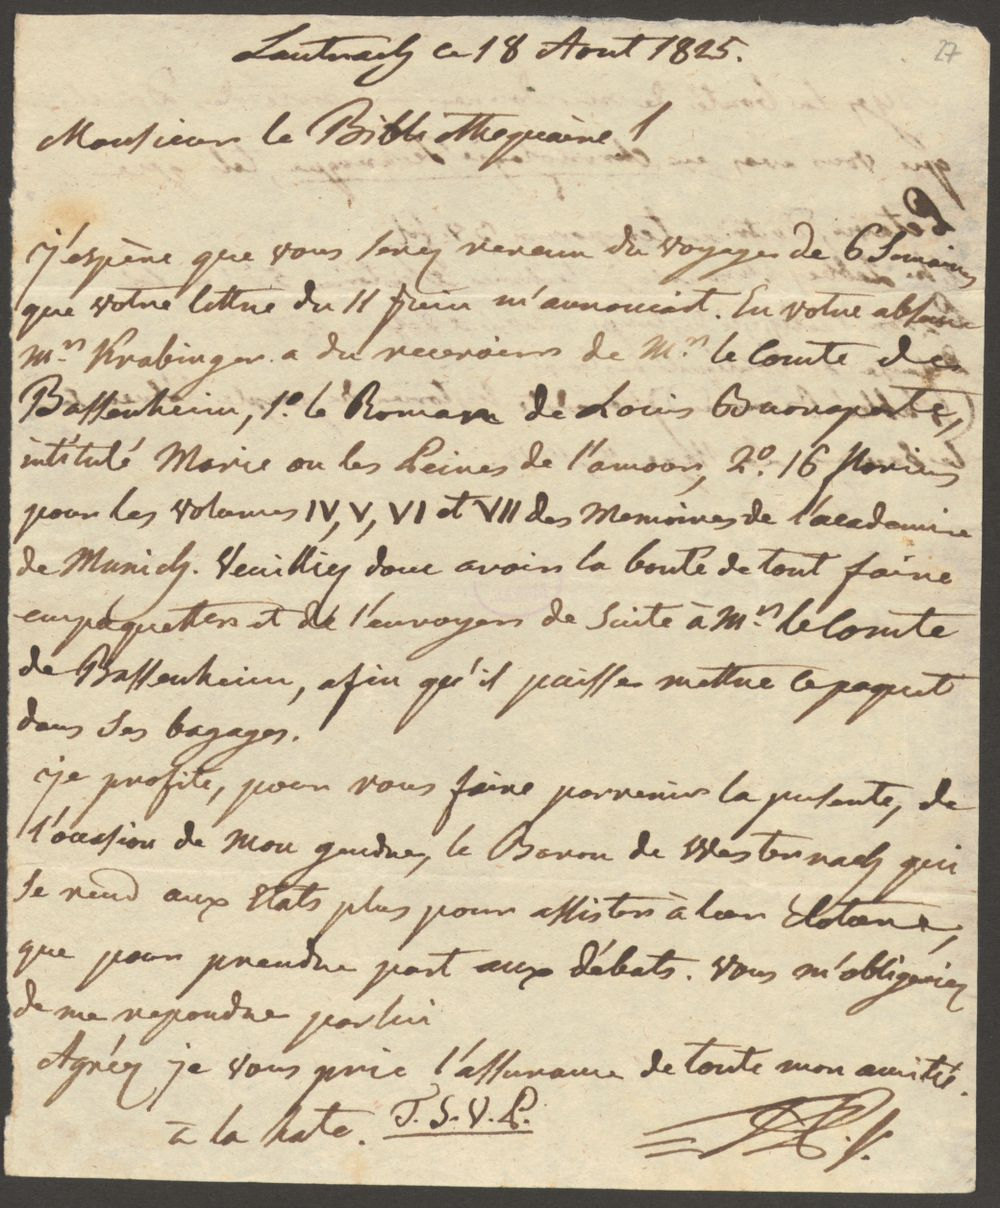 Lautrach ce 18 Aout 1825.
27
Monsieur le Bibliothequaire!
j'espère que vous serez revenu du voyage de 6 Semaines
que votre lettre du 11 juin m'annoncait. En votre absence
Mr. Krabinger a du recevoir de Mr. le Comte de
Bassenheim, 1o. le Roman de Louis Buonaparte,
intitulé Marie ou les Peines de l'amour, 2o. 16 florins
pour les Volumes IV, V, VI et VII des Memoires de l'academie
de Munich. Veuilliez donc avoir la bonté de tout faire
empaquetter et de l'envoyer de suite à Mr. le Comte
de Bassenheim, afin qu'il puisse mettre ce paquet
dans ses bagages.
je profite, pour vous faire parvenir la presente, de
l'occasion de mon gendre, le Baron de Westernach qui
se rend aux Etats plus pour assister à leur cloture,
que pour prendre part aux débats. Vous m'obligeriez
de me repondre par lui
Agréez je vous prie l'assurance de toute mon amitié.
à la hate. T.S.V.P.